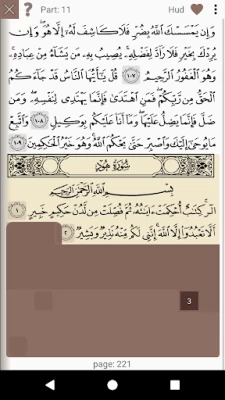 Part: 11 Hud
وَإِن يَمْسَسْكَ ٱللَّهُ بِضُرٍّ فَلَا كَاشِفَ لَهُۥٓ إِلَّا هُوَ ۖ وَإِن
يُرِدْكَ بِخَيْرٍ فَلَا رَآدَّ لِفَضْلِهِۦ ۚ يُصِيبُ بِهِۦ مَن يَشَآءُ مِنْ عِبَادِهِۦ ۚ
وَهُوَ ٱلْغَفُورُ ٱلرَّحِيمُ ١٠٧ قُلْ يَٰٓأَيُّهَا ٱلنَّاسُ قَدْ جَآءَكُمُ
ٱلْحَقُّ مِن رَّبِّكُمْ ۖ فَمَنِ ٱهْتَدَىٰ فَإِنَّمَا يَهْتَدِى لِنَفْسِهِۦ ۖ وَمَن
ضَلَّ فَإِنَّمَا يَضِلُّ عَلَيْهَا ۖ وَمَآ أَنَا۠ عَلَيْكُم بِوَكِيلٍ ١٠٨ وَٱتَّبِعْ
مَا يُوحَىٰٓ إِلَيْكَ وَٱصْبِرْ حَتَّىٰ يَحْكُمَ ٱللَّهُ ۚ وَهُوَ خَيْرُ ٱلْحَٰكِمِينَ ١٠٩
سُورَةُ هُودٍ
بِسْمِ ٱللَّهِ ٱلرَّحْمَٰنِ ٱلرَّحِيمِ
الٓر ۚ كِتَٰبٌ أُحْكِمَتْ ءَايَٰتُهُۥ ثُمَّ فُصِّلَتْ مِن لَّدُنْ حَكِيمٍ خَبِيرٍ ١
أَلَّا تَعْبُدُوٓا۟ إِلَّا ٱللَّهَ ۚ إِنَّنِى لَكُم مِّنْهُ نَذِيرٌ وَبَشِيرٌ ٢
3
page: 221